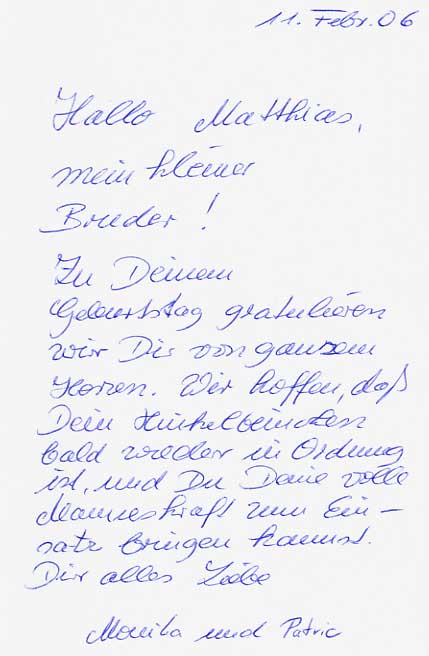 11. Febr. 06
Hallo Matthias,
mein kleiner
Bruder!
Zu Deinem
Geburtstag gratulieren
wir Dir von ganzem
Herzen. Wir hoffen, daß
Dein Hinkelbeinchen
bald wieder in Ordnung
ist, und Du Deine volle
Manneskraft zum Ein-
satz bringen kannst.
Dir alles Liebe
Monika und Patric